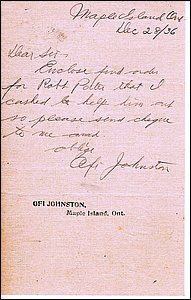 Maple Island Ont
Dec 28/36
Dear Sir
Enclose find order
for Robt Peter that I
cashed to help him out
so please send cheque
to me and
oblige
Ofi Johnston
OFI JOHNSTON,
Maple Island, Ont.